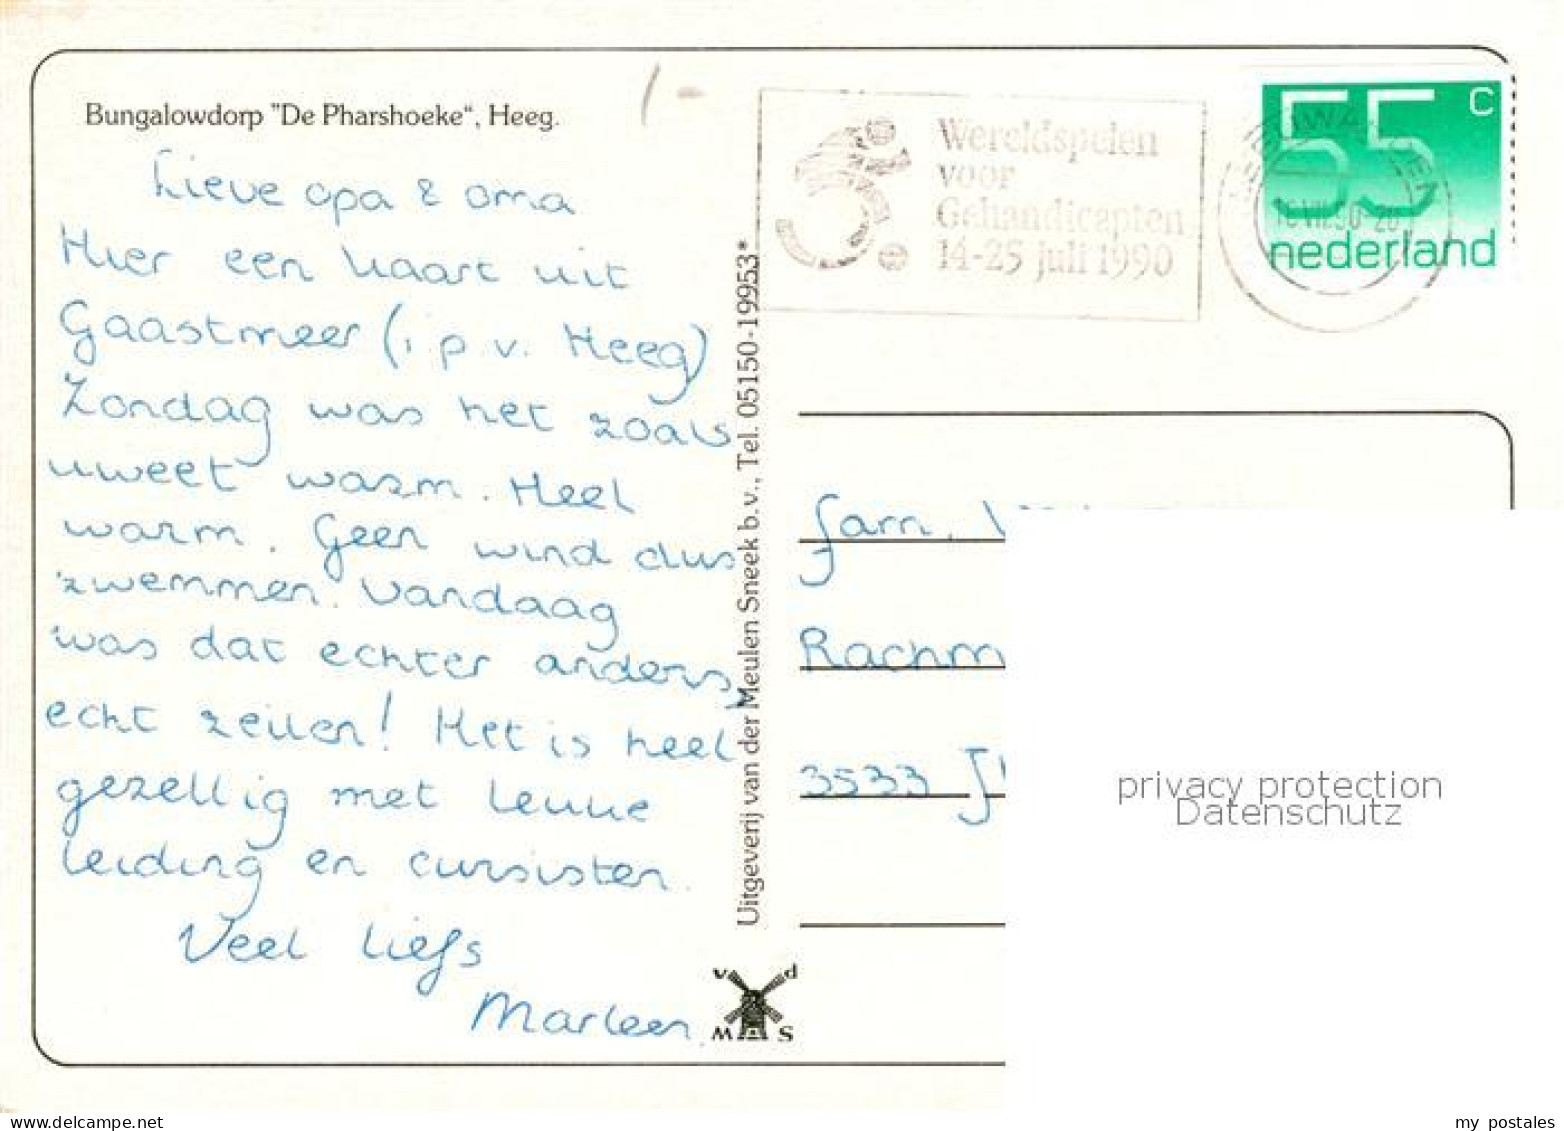 Bungalowdorp "De Pharshoeke", Heeg.
Lieve opa & oma
Hier een kaart uit
Gaastmeer (i.p.v. Heeg)
Zondag was het zoals
uweet warm. Heel
warm. Geen wind dus
zwemmen. Vandaag
was dat echter anders,
echt zeilen! Het is heel
gezellig met leuke
leiding en cursisten.
Veel liefs
Marleen.
Uitgeverij van der Meulen Sneek b.v., Tel. 05150-19953*
v d
M S
Wereldspelen
voor
Gehandicapten
14-25 juli 1990
55 c
nederland
fam.
Rachm
3533
privacy protection
Datenschutz
www.delcampe.net
my postales